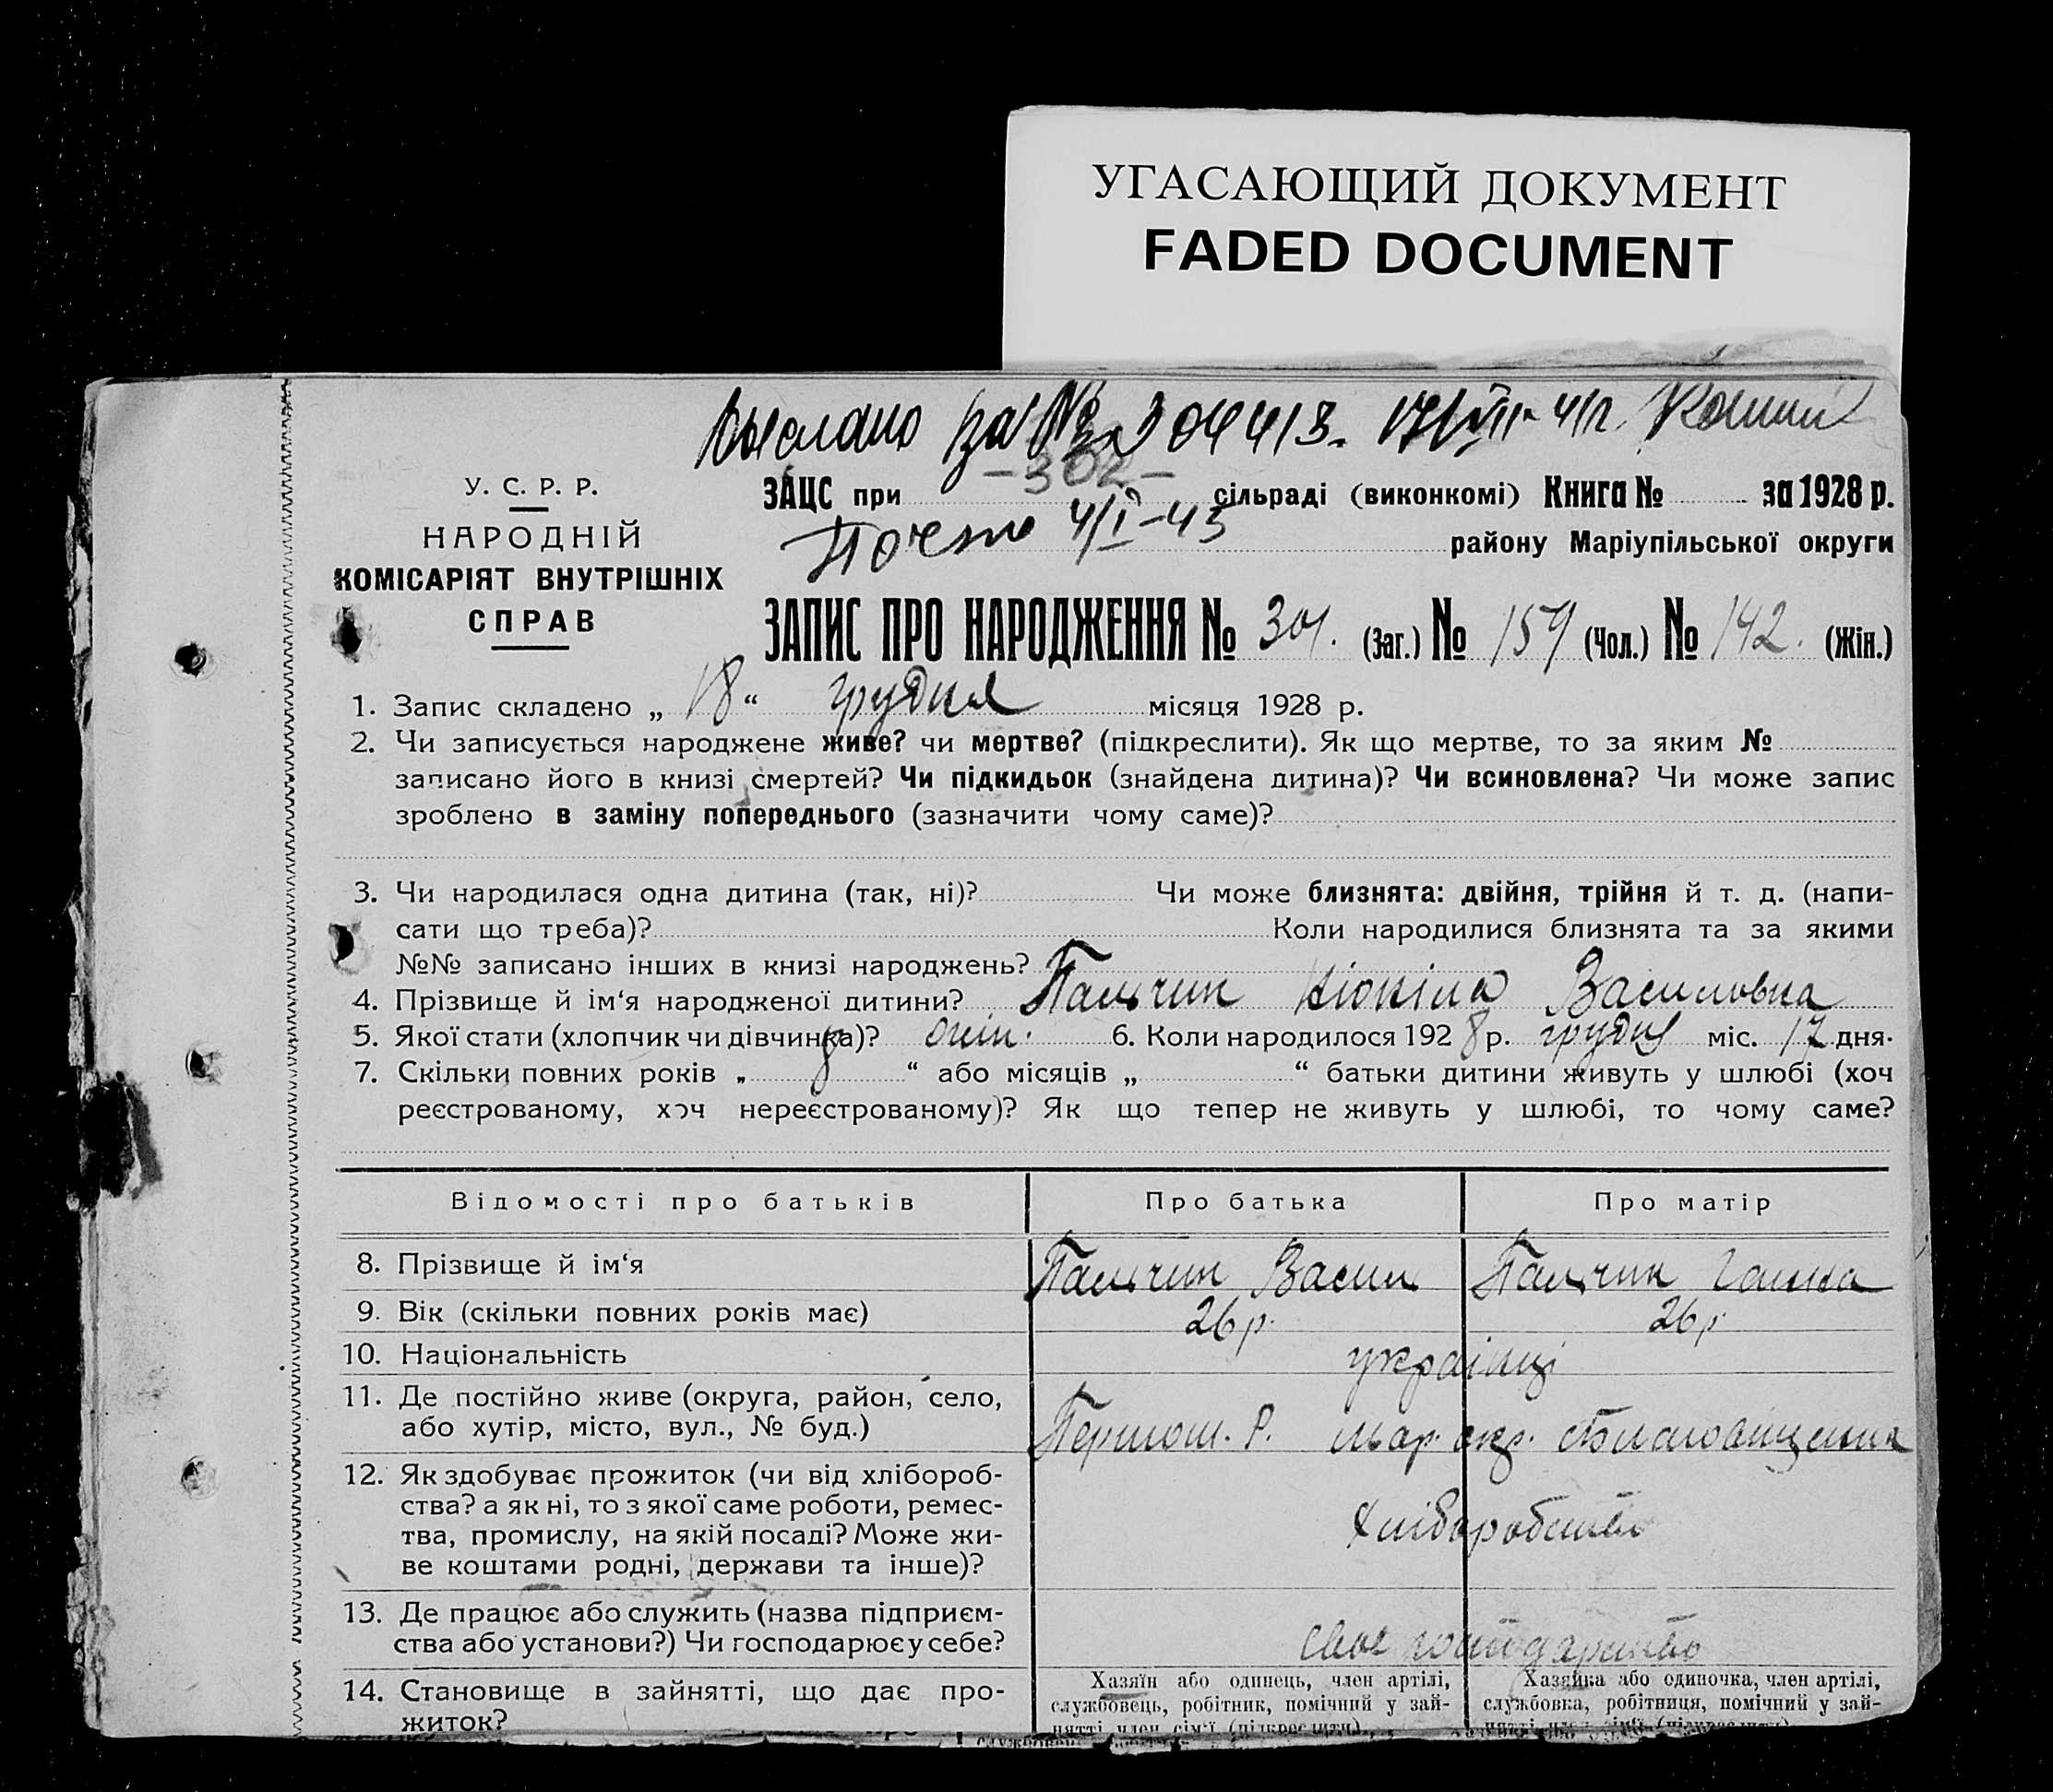 УГАСАЮЩИЙ ДОКУМЕНТ
FADED DOCUMENT
выслано за № 304413. 17/VII-41г.
-302-
У. С. Р. Р.
НАРОДНІЙ
КОМІСАРІЯТ ВНУТРІШНІХ
СПРАВ
ЗАЦС при сільраді (виконкомі) Книга № за 1928 р.
4/I-43
району Маріупільської округи
ЗАПИС ПРО НАРОДЖЕННЯ № 301. (Заг.) № 159 (Чол.) № 142. (Жін.)
1. Запис складено „ 18 “ грудня місяця 1928 р.
2. Чи записується народжене живе? чи мертве? (підкреслити). Як що мертве, то за яким №
записано його в книзі смертей? Чи підкидьок (знайдена дитина)? Чи всиновлена? Чи може запис
зроблено в заміну попереднього (зазначити чому саме)?
3. Чи народилася одна дитина (так, ні)? Чи може близнята: двійня, трійня й т. д. (напи-
сати що треба)? Коли народилися близнята та за якими
№№ записано інших в книзі народжень?
4. Прізвище й ім‘я народженої дитини? Пальчик Василовна
5. Якої статі (хлопчик чи дівчинка)? 6. Коли народилося 1928 р. грудня міс. 17 дня.
7. Скільки повних років „ 8 “ або місяців „ “ батьки дитини живуть у шлюбі (хоч
реєстрованому, хоч нереєстрованому)? Як що тепер не живуть у шлюбі, то чому саме?
Відомості про батьків Про батька Про матір
8. Прізвище й ім‘я Пальчик Васил Пальчик Ганна
9. Вік (скільки повних років має) 26 р. 26 р.
10. Національність українці
11. Де постійно живе (округа, район, село,
або хутір, місто, вул., № буд.) Першот. Р. мар. окр. с Благовіщенка
12. Як здобуває прожиток (чи від хлібороб-
ства? а як ні, то з якої саме роботи, ремес-
тва, промислу, на якій посаді? Може жи-
ве коштами родні, держави та інше)?
хліборобство
13. Де працює або служить (назва підприєм-
ства або установи?) Чи господарює у себе? своє господарство
14. Становище в зайнятті, що дає про-
житок?
Хазяїн або одинець, член артілі,
службовець, робітник, помічний у зай-
нятті член сім‘ї (підкреслити).
Хазяйка або одиночка, член артілі,
службовка, робітниця, помічний у зай-
нятті член сім‘ї (підкреслити).